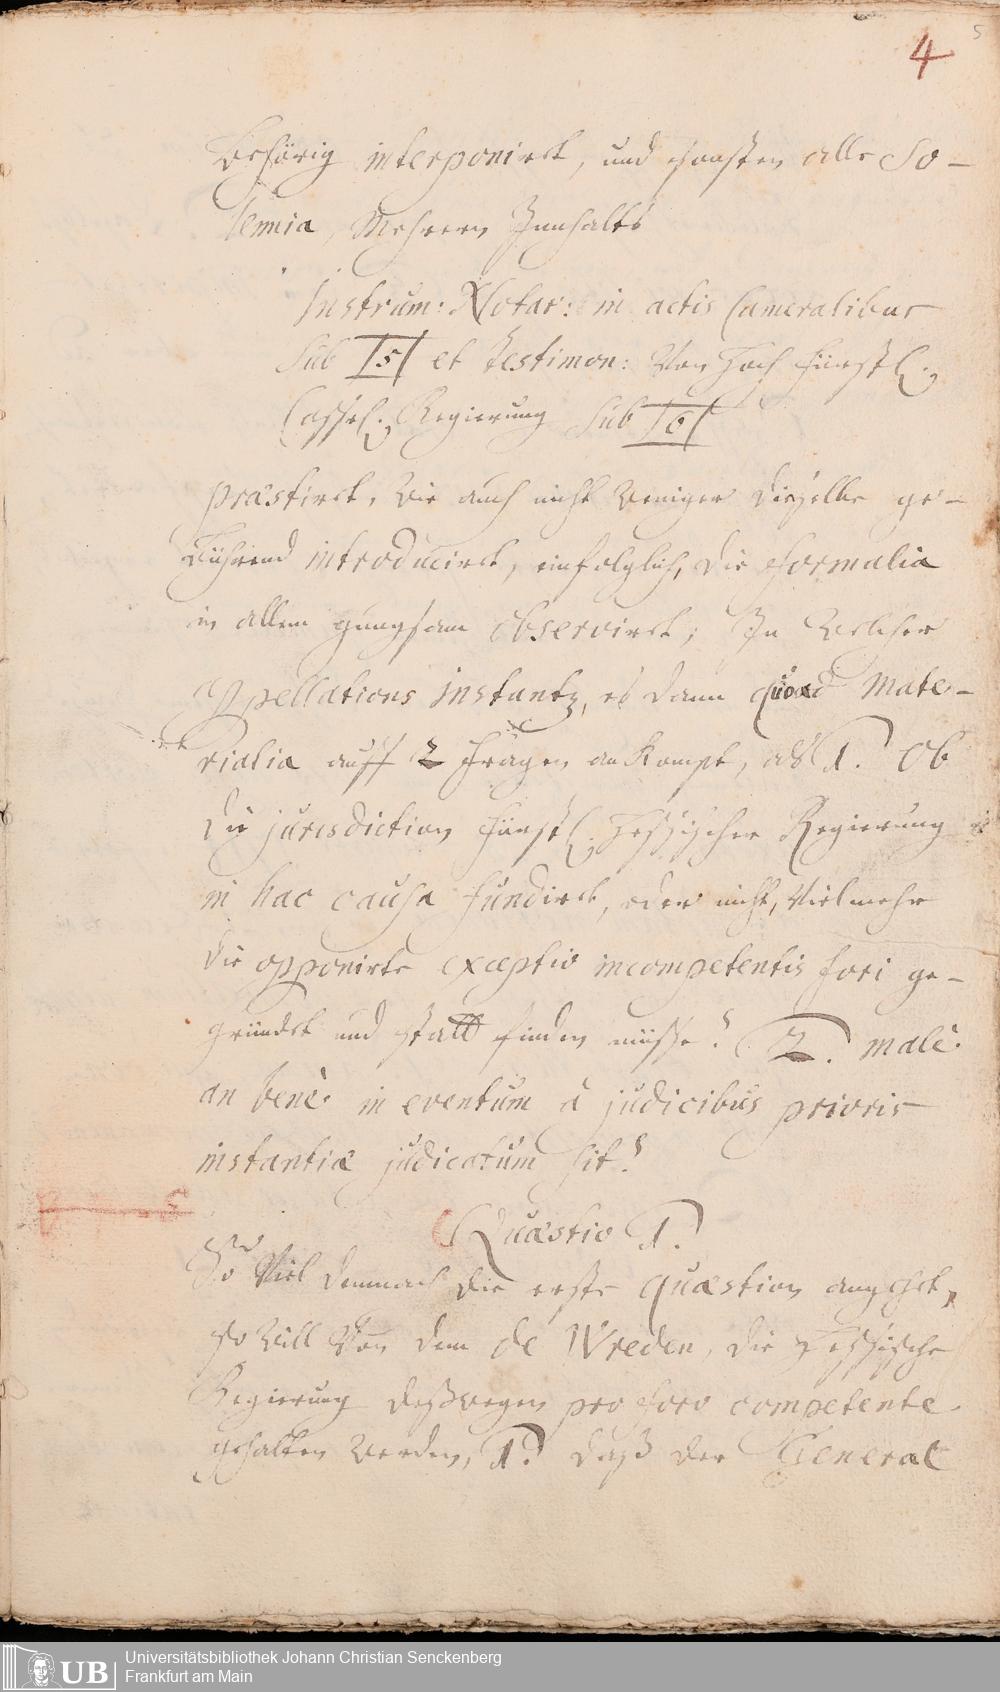 4
5
behörig interponirt, und sonsten alle So-
lemnia, Mehrern Innhalts
Instrum: Notar: in actis Cameralibus
Sub [5] et Testimon: Von Hoch fürstl.
Cassel. Regierung Sub [6]
præstirt, wie auch nicht weniger dieselbe ge-
bührend introducirt, einfolglich, die formalia
in allem gnugsam observirt; In welcher
Appellations instantz, es dann quoad mate-
rialia auff 2 fragen ankompt, als 1. Ob
die jurisdiction fürstl. Hessischer Regierung
in hac causa fundirt, oder nicht, Vielmehr
die opponirte exceptio incompetentis fori ge-
gründet und statt finden müsse? 2. malè
an benè in eventum à judicibus prioris
instantiæ judicatum sit?
Quæstio 1.
So Viel demnach die erste quæstion angehet,
so will Von dem de Wreden, die Hessische
Regierung deßwegen pro foro competente
gehalten werden, 1. daß der General
UB
Universitätsbibliothek Johann Christian Senckenberg
Frankfurt am Main